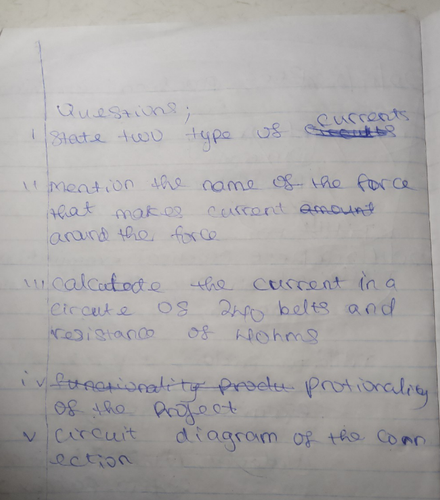 Questions;
i State two type of currents
ii mention the name of the force
that makes current amount
around the force
iii calculate the current in a
circute of 240 belts and
resistance of 40hms
iv functionality produ protionality
of the project
v circuit diagram of the conn
ection